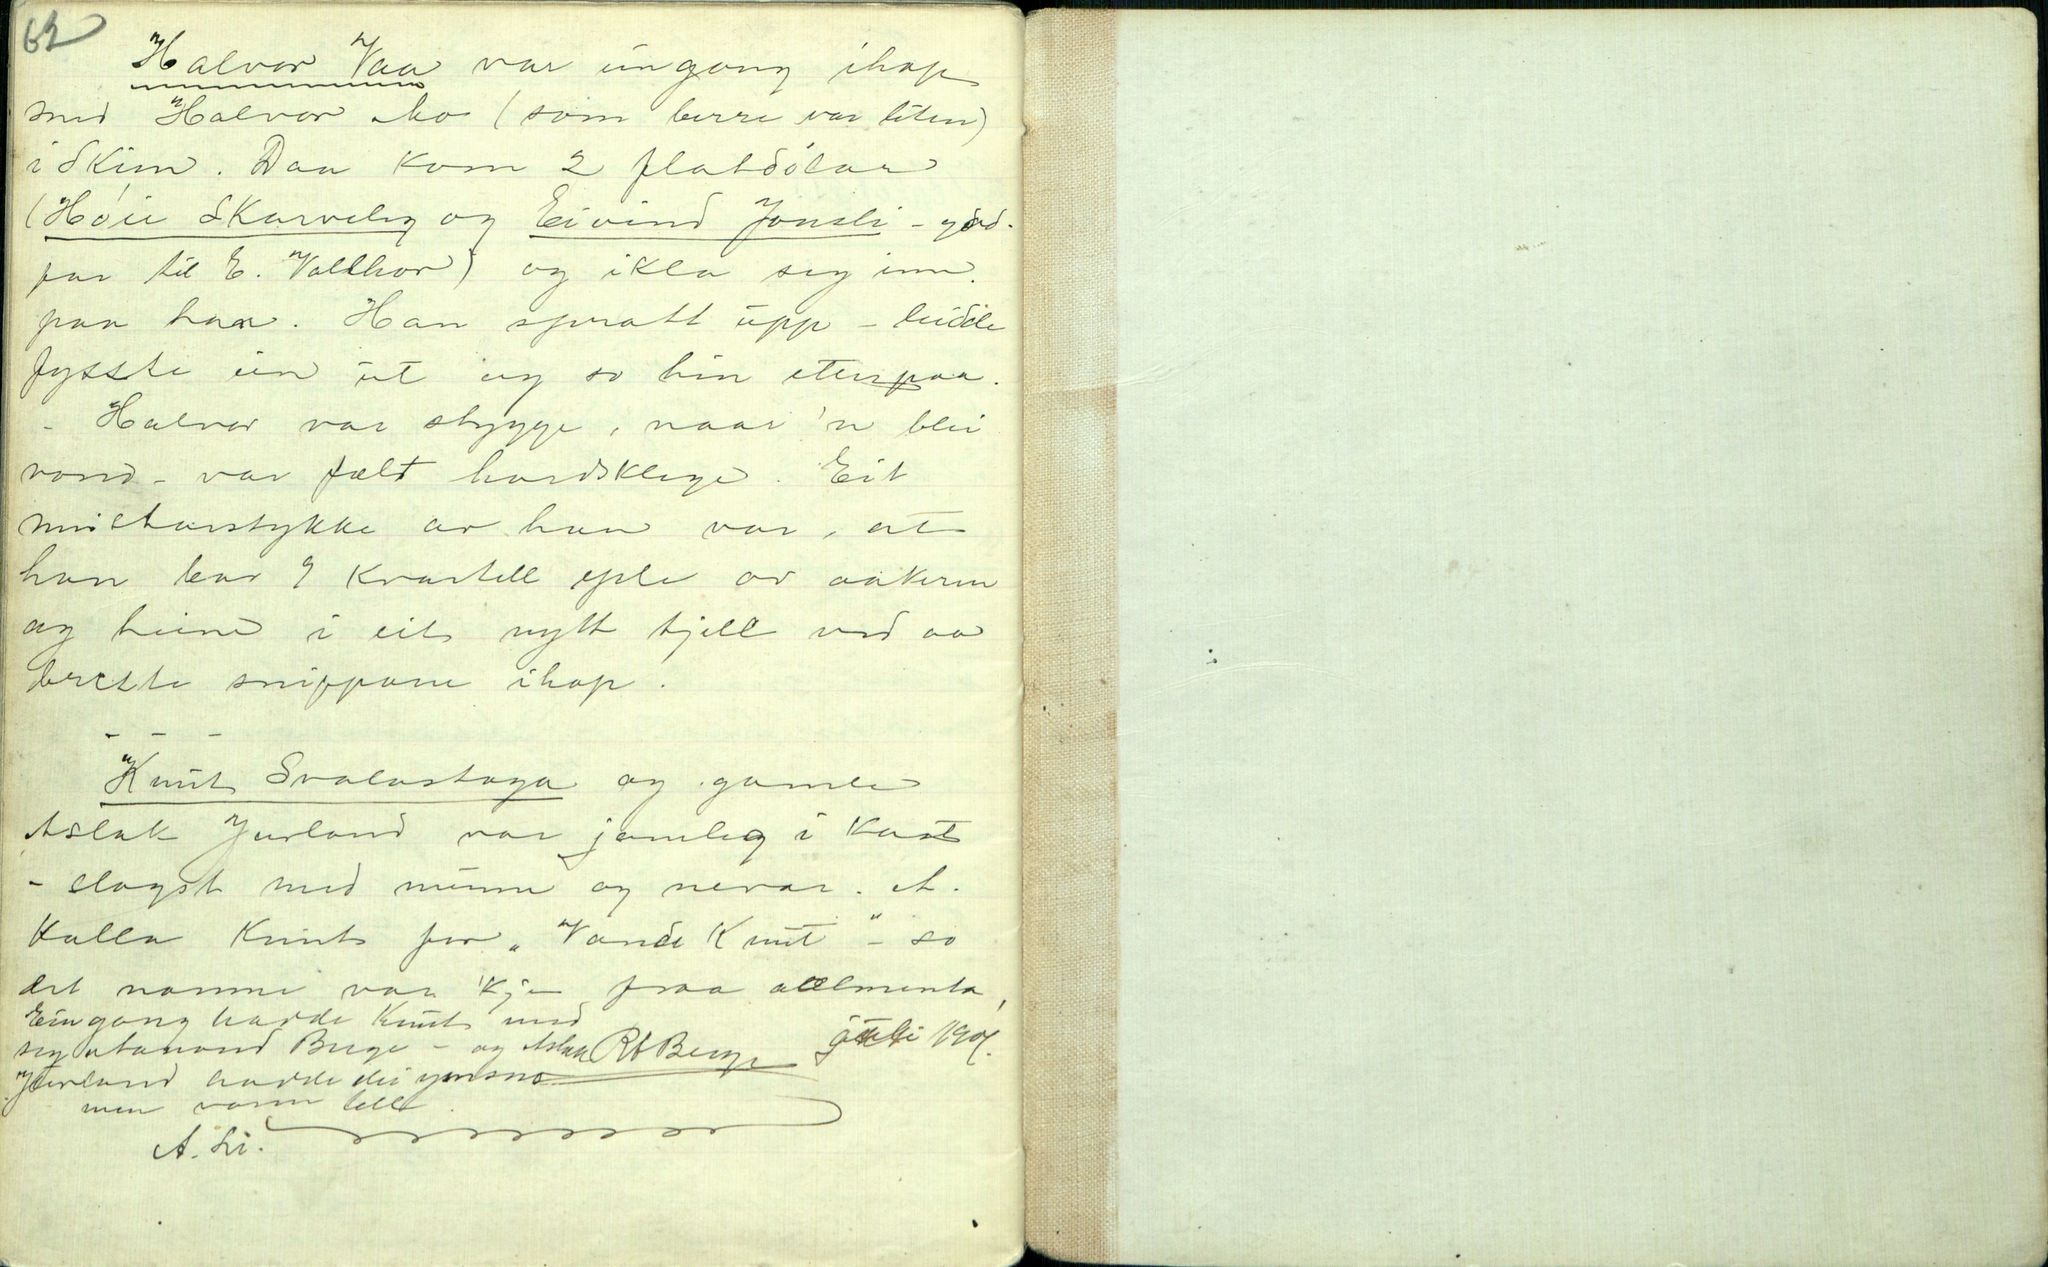 62
Halvor Vaa var eingong ihop
med Halvor Mo (som berre var liten)
i Skien. Daa kom 2 flatdølar
(Høie Skarveleg og Eivind Jonsli - god-
far til E. Vallhov) og ikla seg inn
paa han. Han spratt upp - leidde
fysste ein ut og so hin etterpaa.
- Halvor var stygge, naar 'n blei
vond - var fælt hardsklege. Eit
meisterstykke av han var, at
han bar 9 kvartell eple av aakeren
og heim i eit nytt tjell ved aa
brette snippane ihop.
- - -
Knut Svalastoga og gamle
Aslak Jurland var jamleg i kast
- slogst med munn og nevar. A.
kalla Knut for "Vonde Knut" - so
det namne var 'kje fraa allmenta,
Ein gong hadde Knut med
seg utanond Berge - og Aslak
Jurland hadde dei
men vonn lell.
A. Li.
R Berge juli 190